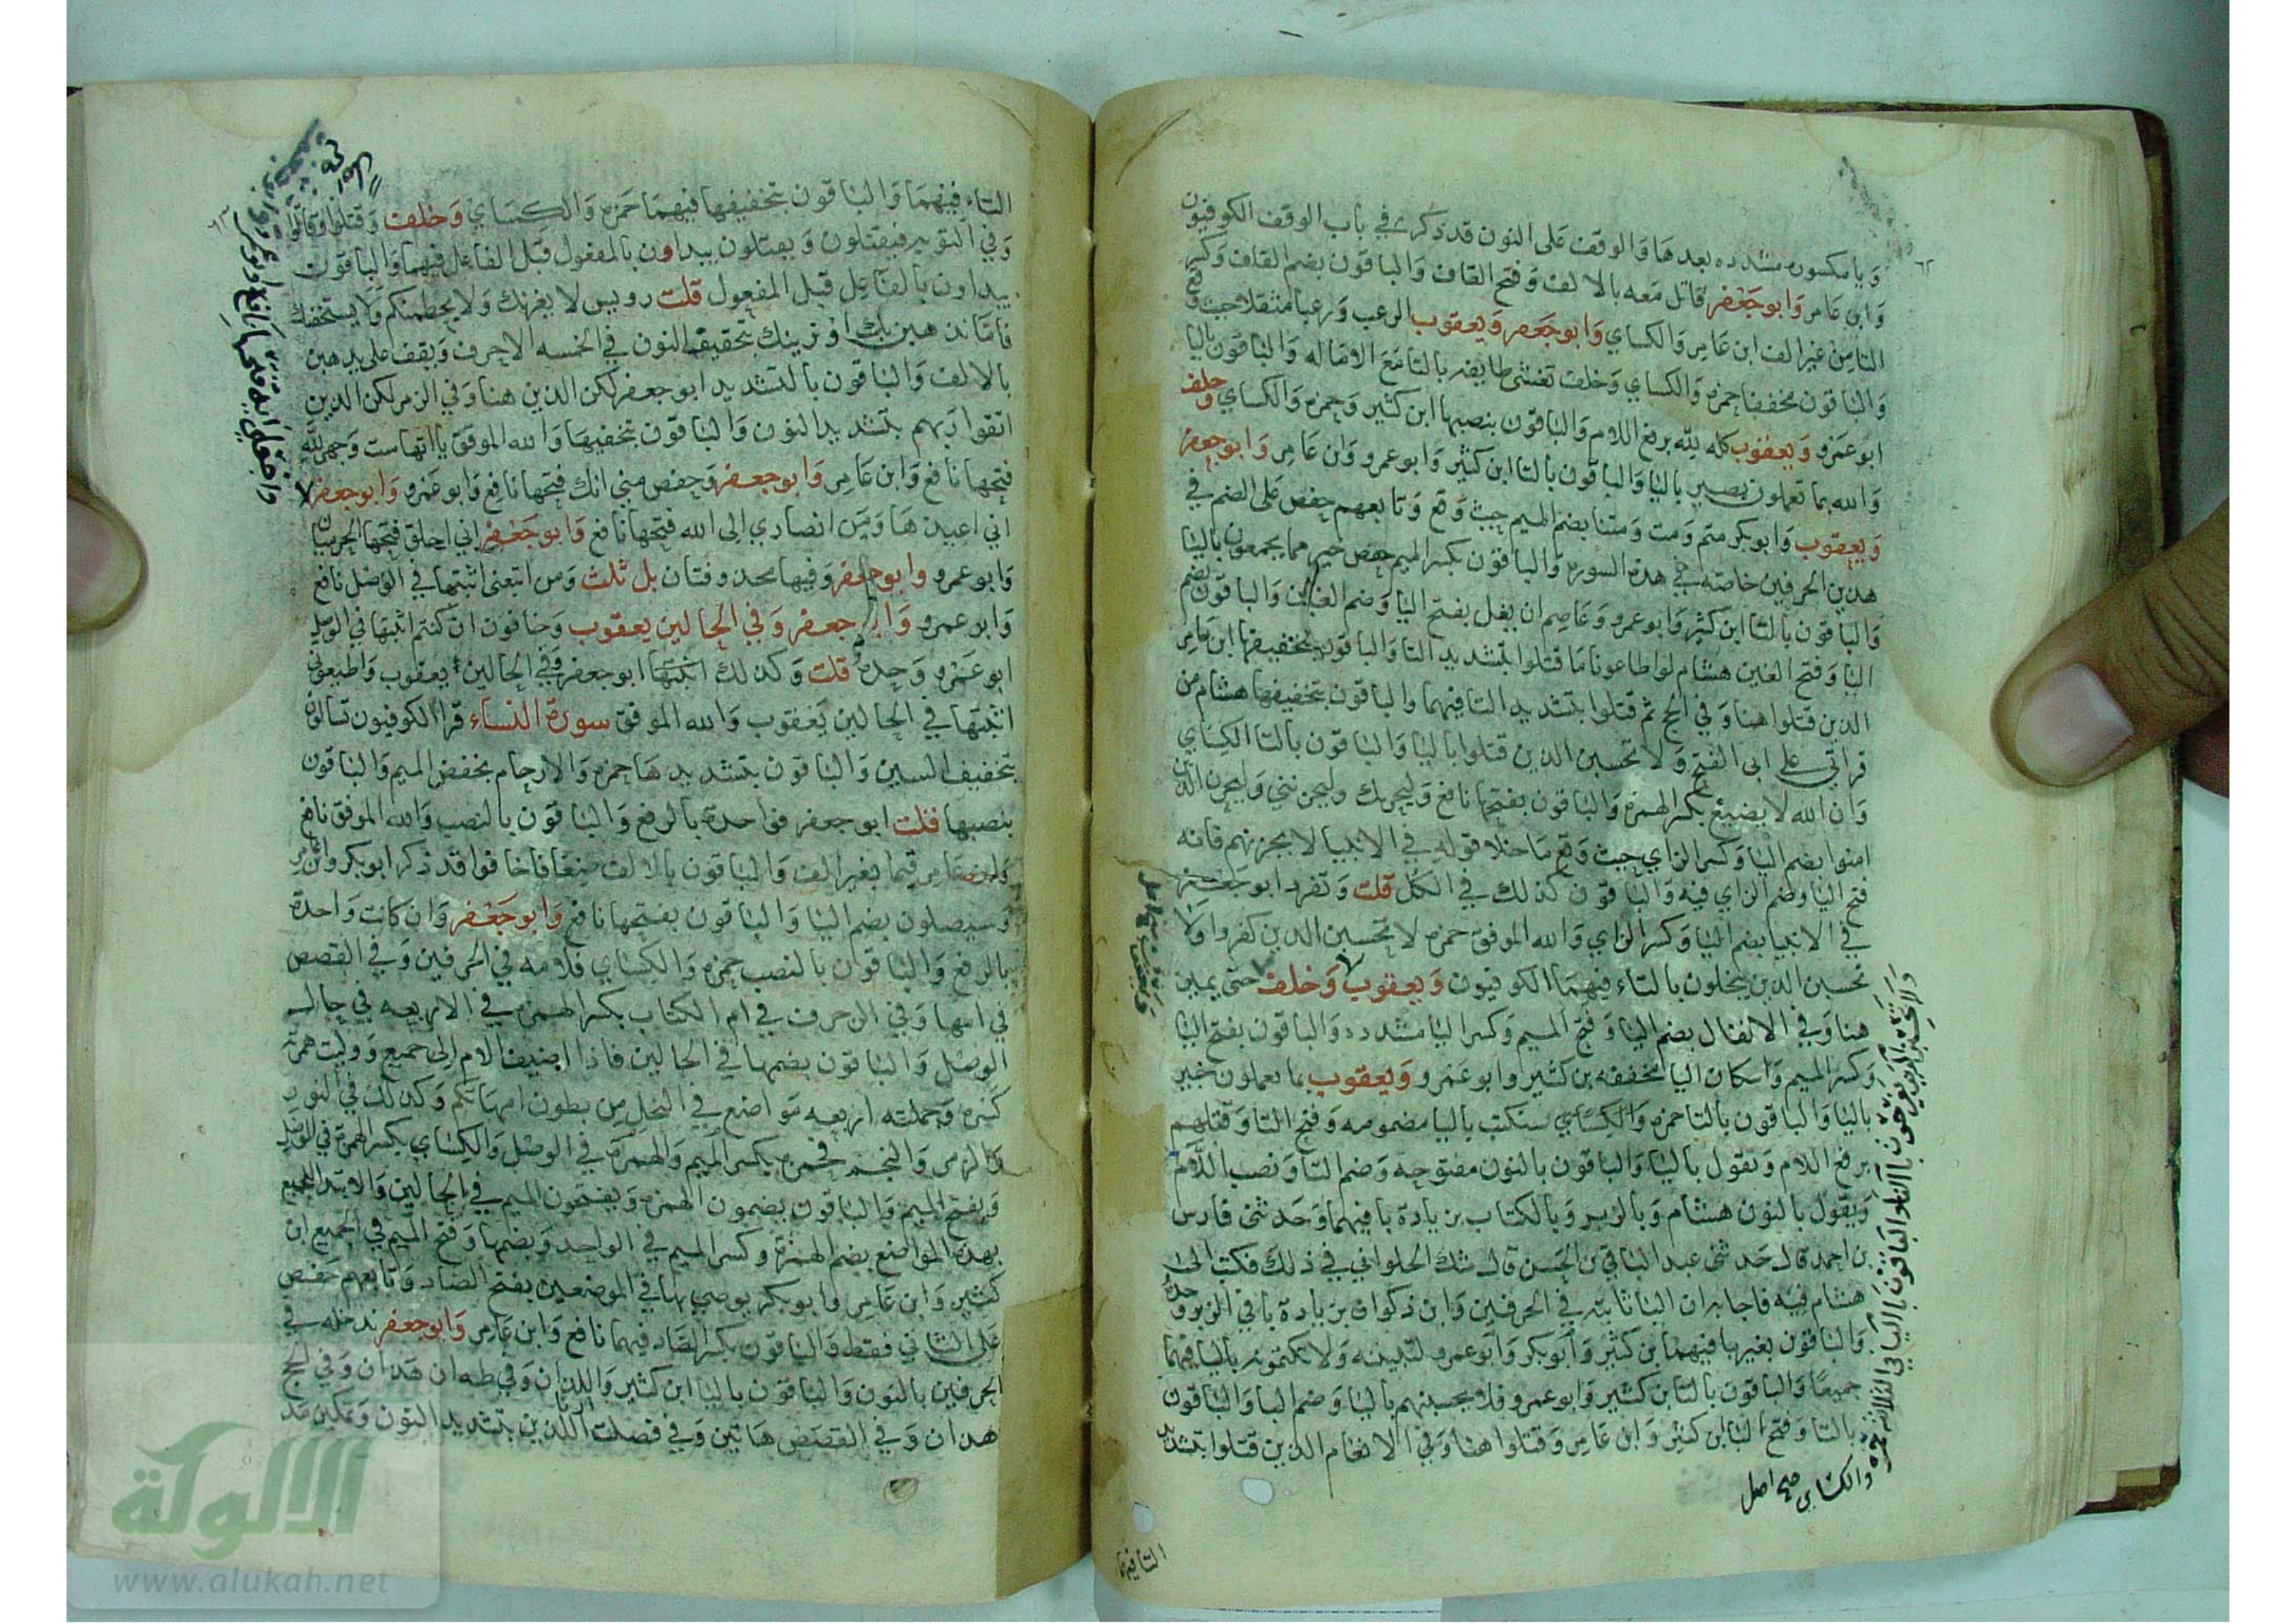 ويا مكسوره مشدده بعدها والوقف على النون قد ذكر في باب الوقف الكوفيون
وابن عامر وابو جعفر قاتل معه بالالف وفتح القاف والباقون بضم القاف وكسر
التا من غير الف ابن عامر والكساي وابو جعفر ويعقوب الرعب ورعبا مثقلا حيث وقع
والباقون مخففا حمزه والكساي وخلف تغشى طايفه بالتا مع الاماله والباقون باليا
ابو عمرو ويعقوب كله لله برفع اللام والباقون بنصبها ابن كثير وحمزه والكساي وخلف
والله بما تعملون بصير باليا والباقون بالتا ابن كثير وابو عمرو وابن عامر وابو جعفر
ويعقوب وابو بكر متم ومت ومتنا بضم الميم حيث وقع وتابعهم حفص على الضم في
هذين الحرفين خاصه في هذه السوره والباقون بكسر الميم حفص خير مما يجمعون باليا
والباقون بالتا ابن كثير وابو عمرو وعاصم ان يغل بفتح اليا وضم الغين والباقون بضم
اليا وفتح الغين هشام لو اطاعونا ما قتلوا بتشديد التا والباقون بتخفيفها ابن عامر
الذين قتلوا هنا وفي الحج ثم قتلوا بتشديد التا فيهما والباقون بتخفيفها هشام من
قراتي على ابي الفتح ولا تحسبن الذين قتلوا باليا والباقون بالتا الكساي
وان الله لا يضيع بكسر الهمزه والباقون بفتحها نافع وليحزنك وليحزنني وليحزن الذين
امنوا بضم اليا وكسر الزاي حيث وقع ما خلا قوله في الانبيا لا يحزنهم فانه
فتح اليا وضم الزاي فيه والباقون كذلك في الكل قلت وتفرد ابو جعفر
في الانبيا بضم اليا وكسر الزاي والله الموفق حمزه لا تحسبن الذين كفروا ولا
تحسبن الذين يبخلون بالتاء فيهما الكوفيون ويعقوب وخلف حتى يميز
هنا وفي الانفال بضم اليا وفتح الميم وكسر اليا مشدده والباقون بفتح اليا
وكسر الميم واسكان اليا مخففه بن كثير وابو عمرو ويعقوب بما تعملون خبير
باليا والباقون بالتا حمزه والكساي سنكتب باليا مضمومه وفتح التا وقتلهم
برفع اللام وتقول باليا والباقون بالنون مفتوحه وضم التا ونصب اللام
ويقول بالنون هشام وبالزبر وبالكتاب بزيادة با فيهما وحدثني فارس
بن احمد قال حدثني عبد الباقي بن الحسن قال شك الحلواني في ذلك فكتب الى
هشام فيه فاجابه ان البا ثابته في الحرفين وابن ذكوان بزيادة با في الزبر وحده
والباقون بغيرها فيهما بن كثير وابو بكر وابو عمرو لتبيننه ولا تكتمونه باليا فيهما
جميعا والباقون بالتا بن كثير وابو عمرو فلا يحسبنهم باليا وضم البا والباقون
بالتا وفتح البا ابن كثير وابن عامر وقتلوا هنا وفي الانعام الذين قتلوا بتشديد
والكساي صح اصل
التا فيهما
التاء فيهما والباقون بتخفيفها فيهما حمزه والكساي وخلف وقتلوا وقاتلوا
وفي التوبه فيقتلون ويقتلون يبداون بالمفعول قبل الفاعل فيهما والباقون
يبداون بالفاعل قبل المفعول قلت رويس لا يغرنك ولا يحطمنكم ولا يستخفنك
فاما نذهبن بك او نرينك بتخفيف النون في الخمسه الاحرف ويقف على نذهبن
بالالف والباقون بالتشديد ابو جعفر لكن الذين هنا وفي الزمر لكن الذين
اتقوا ربهم بتشديد النون والباقون بتخفيفها والله الموفق يااتها ست وجهي لله
فتحها نافع وابن عامر وابو جعفر وحفص مني انك فتحها نافع وابو عمرو وابو جعفر
اني اعيذها ومن انصاري الى الله فتحها نافع وابو جعفر اني اخلق فتحها الحرميان
وابو عمرو وابو جعفر وفيها محذوفتان بل ثلث ومن اتبعني اثبتها في الوصل نافع
وابو عمرو وابو جعفر وفي الحالين يعقوب وخافون ان كنتم اثبتها في الوصل
ابو عمرو وحده قلت وكذلك اثبتها ابو جعفر وفي الحالين يعقوب واطيعوني
اثبتها في الحالين يعقوب والله الموفق سورة النساء قرا الكوفيون تسالون
بتخفيف السين والباقون بتشديدها حمزه والارحام بخفض الميم والباقون
بنصبها قلت ابو جعفر فواحدة بالرفع والباقون بالنصب والله الموفق نافع
وابن عامر قيما بغير الف والباقون بالالف ضعافا خافوا قد ذكر ابو بكر وابن عامر
وسيصلون بضم اليا والباقون بفتحها نافع وابو جعفر وان كانت واحدة
بالرفع والباقون بالنصب حمزه والكساي فلامه في الحرفين وفي القصص
في امها وفي الزخرف في ام الكتاب بكسر الهمزه في الاربعه في حال
الوصل والباقون بضمها في الحالين فاذا اضيف الام الى جميع ووليت همزته
كسره وجملته اربعه مواضع في النحل من بطون امهاتكم وكذلك في النور
والزمر والنجم فحمزه يكسر الميم والهمزة في الوصل والكساي يكسر الهمزة في الوصل
ويفتح الميم والباقون يضمون الهمزه ويفتحون الميم في الحالين والابتدا للجميع
بهذه المواضع بضم الهمزة وكسر الميم في الواحد وبضمها وفتح الميم في الجميع ابن
كثير وابن عامر وابو بكر يوصي بها في الموضعين بفتح الصاد وتابعهم حفص
على الثاني فقط والباقون بكسر الصاد فيهما نافع وابن عامر وابو جعفر ندخله في
الحرفين بالنون والباقون باليا ابن كثير واللذان وفي طه ان هذان وفي الحج
هذان وفي القصص هاتين وفي فصلت اللذين بتشديد النون وتمكين مد
الالوكة
www.alukah.net